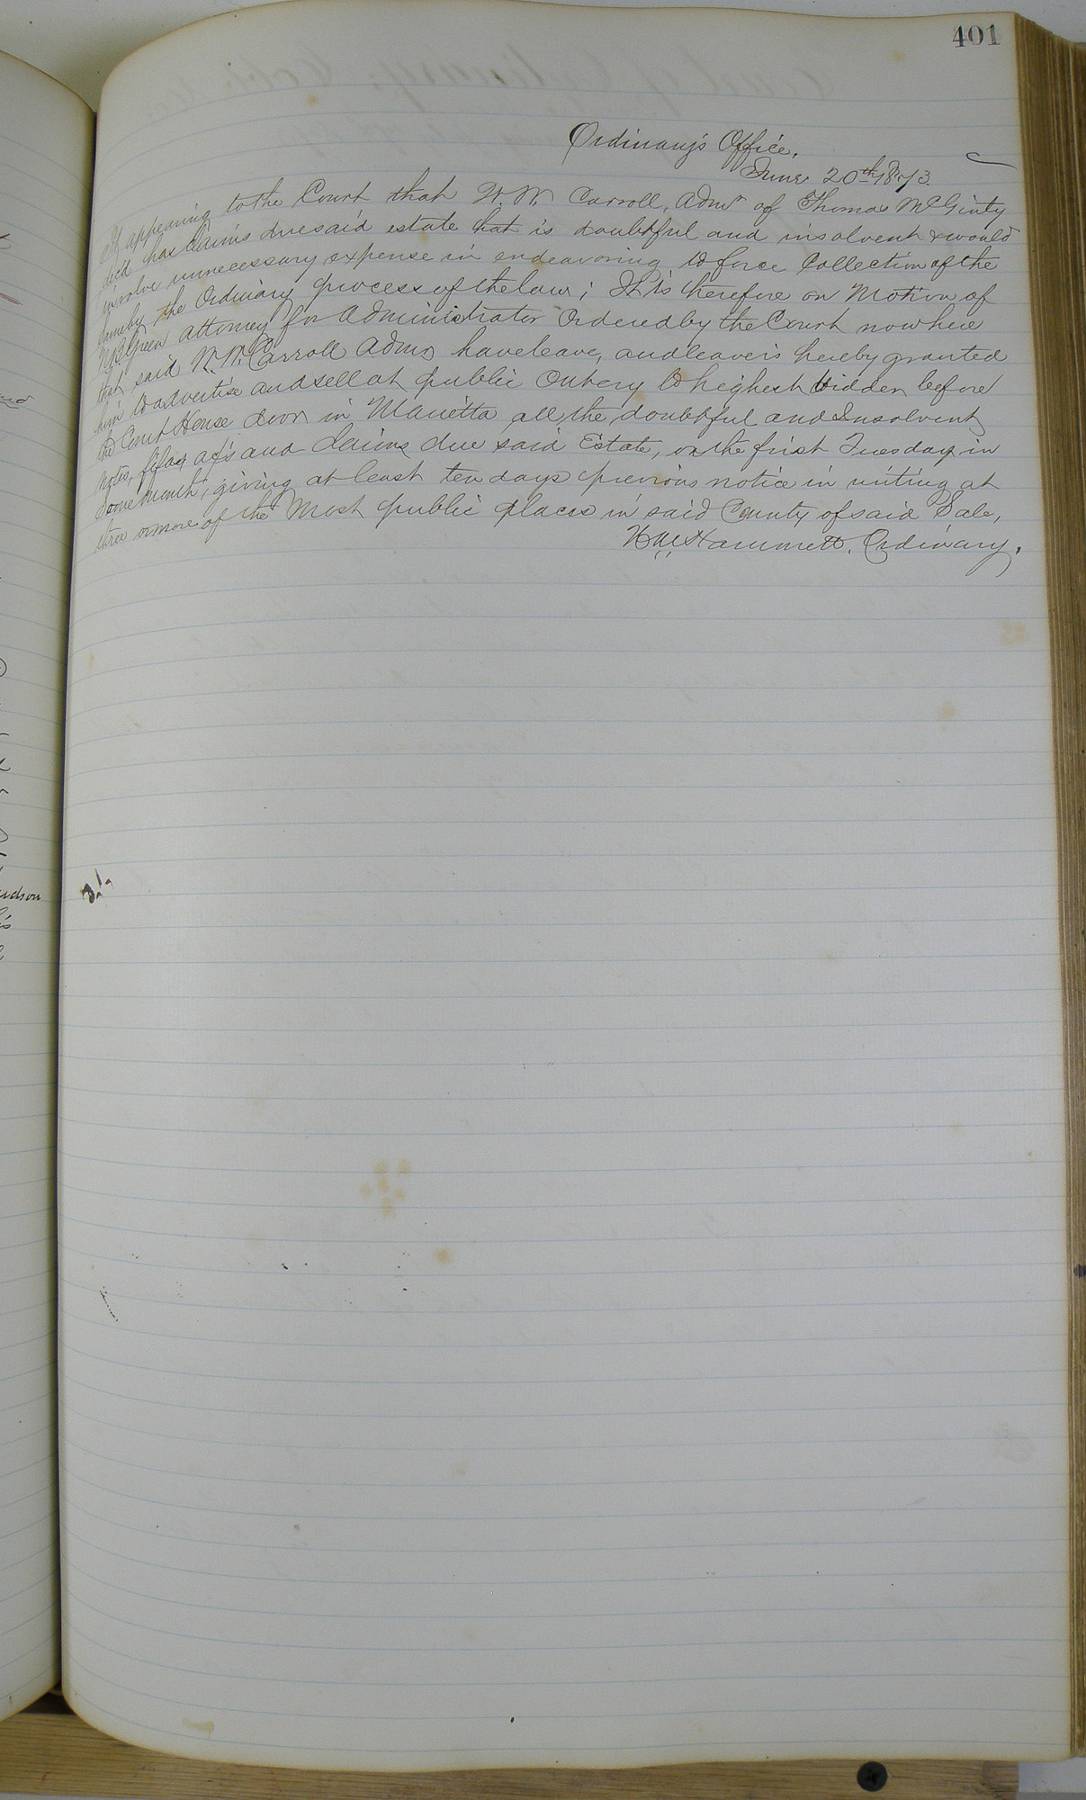 401
Ordinary's Office,
June 20th 1873.
It appearing to the Court that W. W. Carroll, Admr of Thomas McGinty
decd has claims due said estate that is doubtful and insolvent & would
involve unnecessary expense in endeavoring to force Collection of the
same by the Ordinary process of the law; It is therefore on Motion of
Green attorney for Administrator Ordered by the Court now here
that said W. W. Carroll Admr have leave, and leave is hereby granted
him to advertise and sell at public Outcry to highest bidder, before
the Court House door in Marietta all the doubtful and Insolvent
notes, fifas, acfs and Claims due said Estate, on the first Tuesday in
some month, giving at least ten days previous notice in writing at
three or more of the Most public places in said County of said Sale,
Wm Hammett, Ordinary,
udson